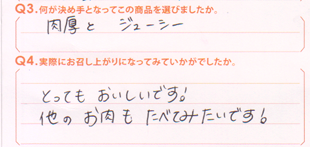 Q3.何が決め手となってこの商品を選びましたか。
肉厚と ジューシー
Q4.実際にお召し上がりになってみていかがでしたか。
とっても おいしいです!
他の お肉も たべてみたいです!